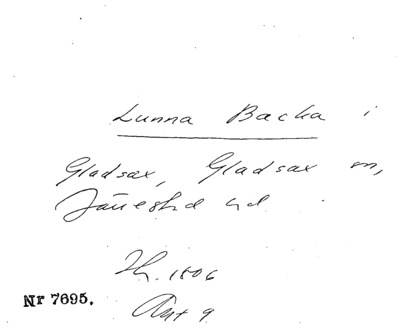 Lunna Backa i
Gladsax, Gladsax sn,
Järrestad hd.
Lh. 1806
Nr 7695.
Akt 9